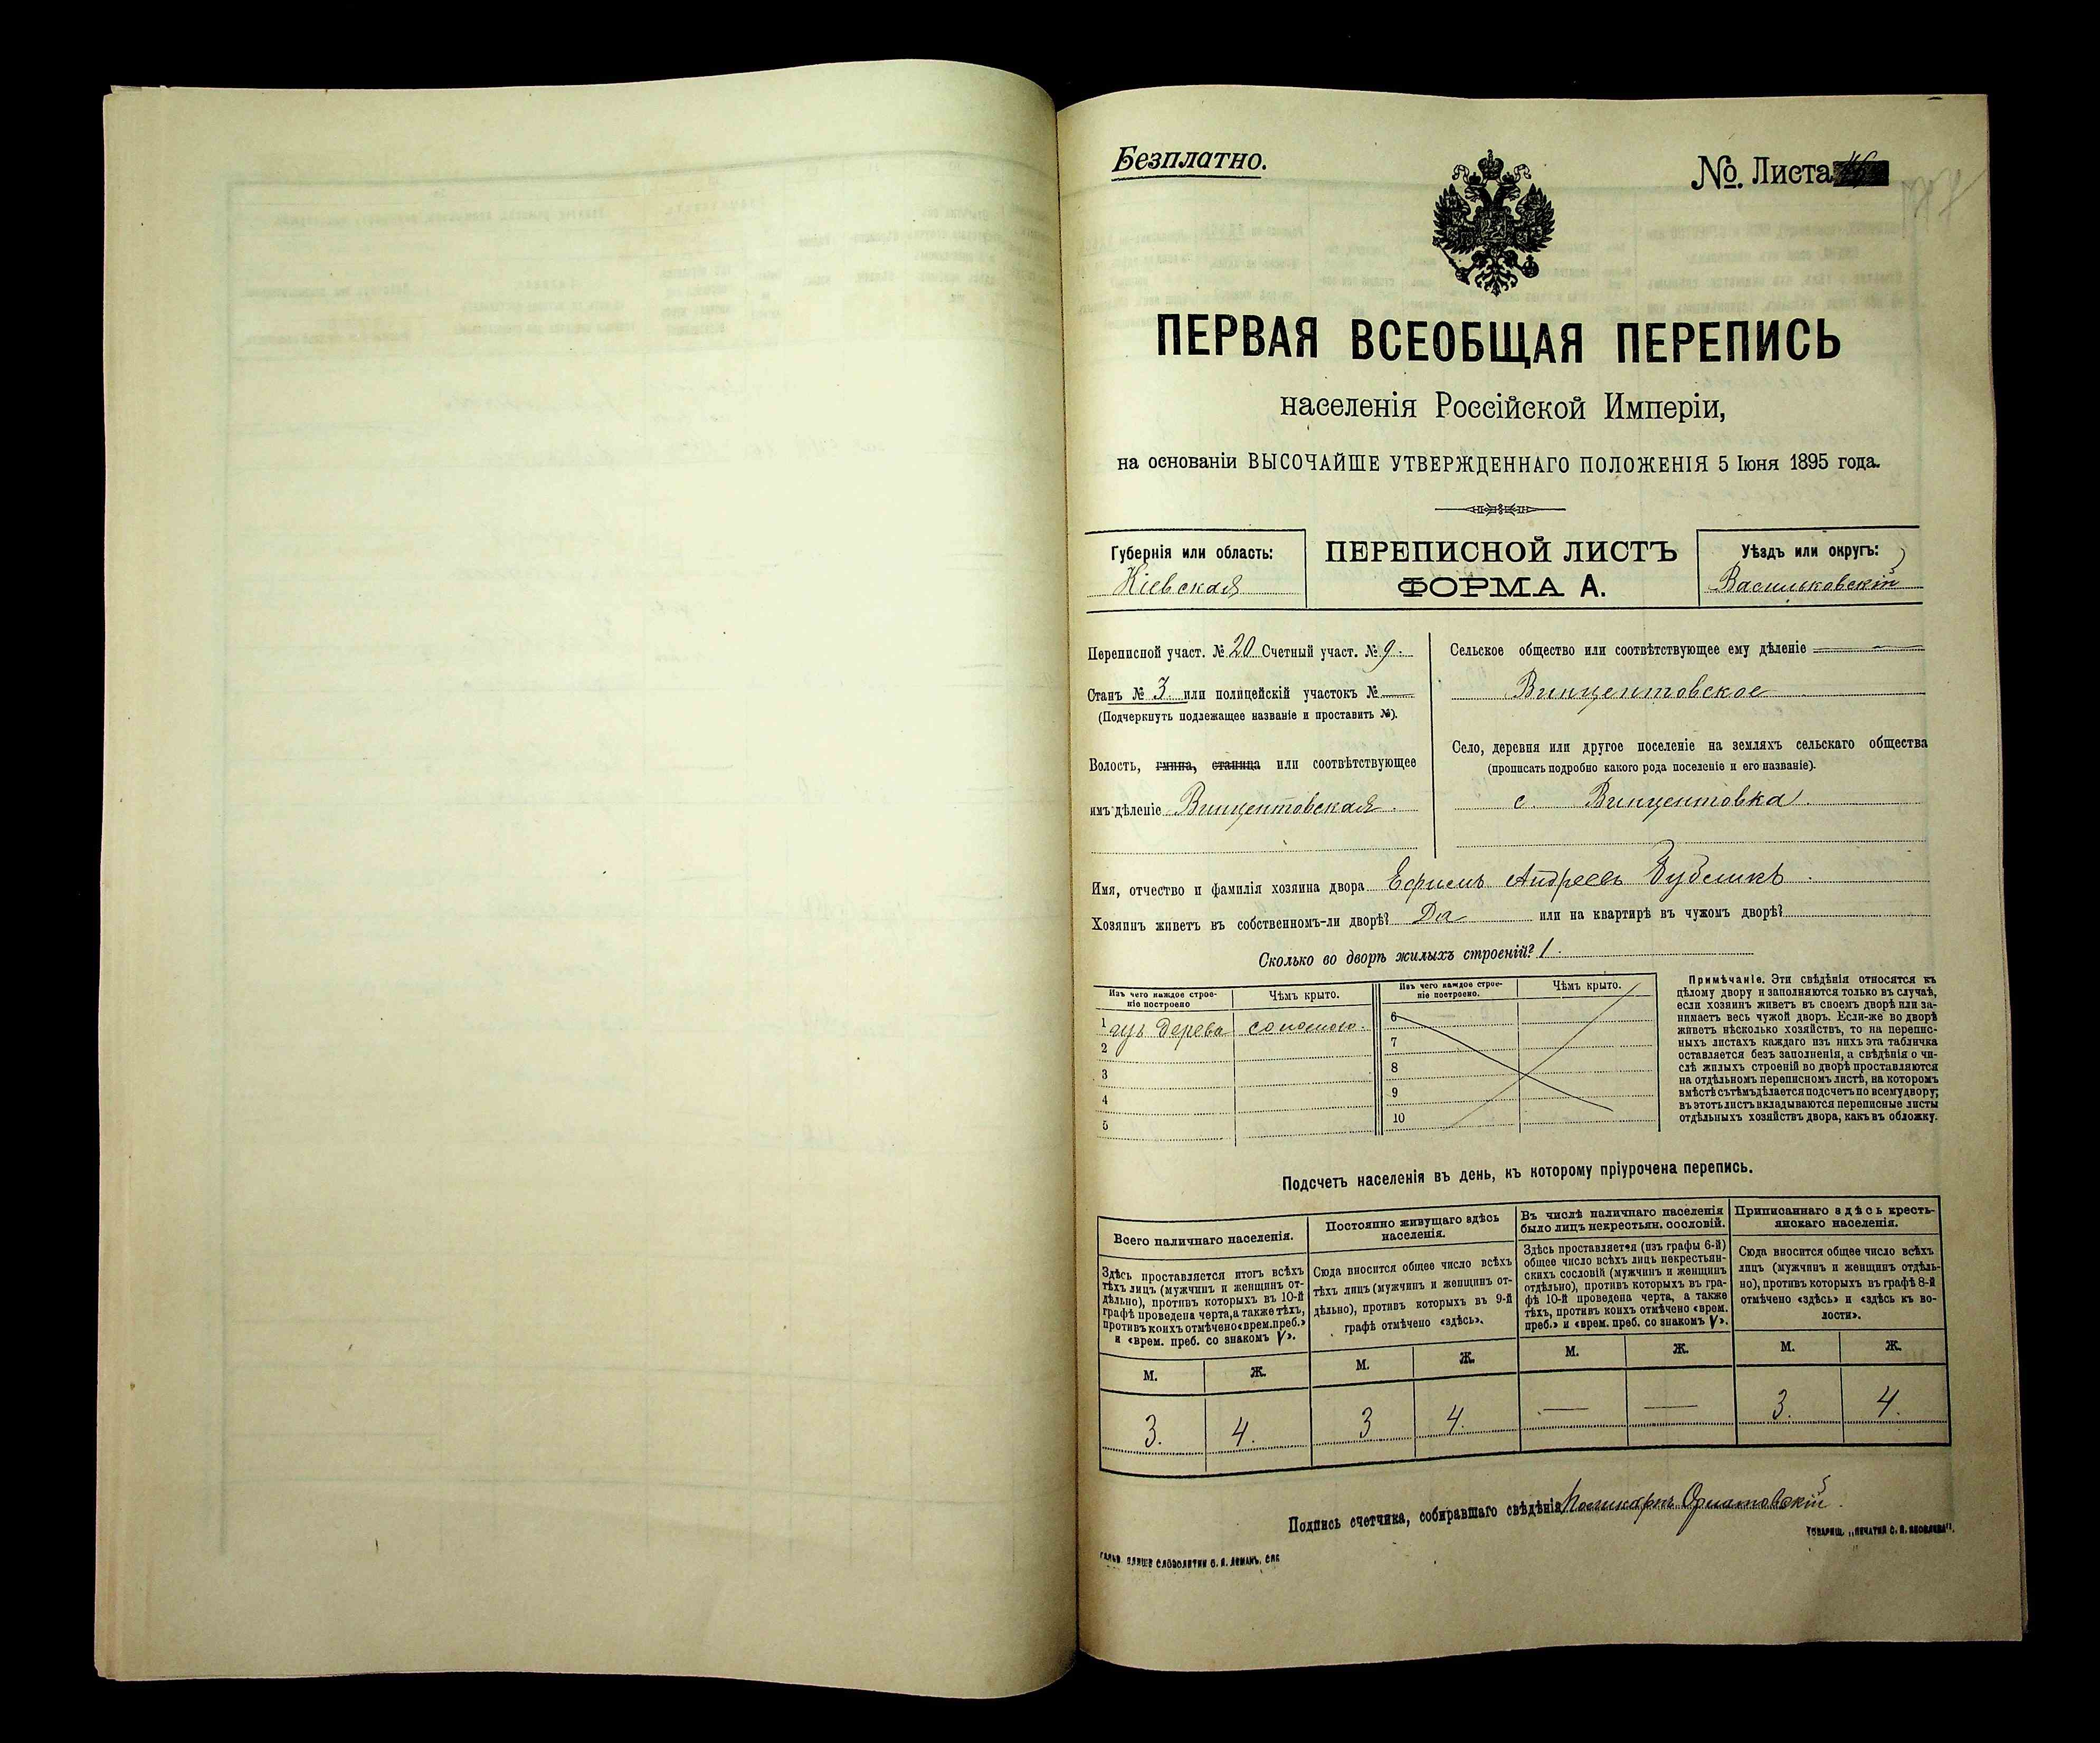 Безплатно.
No. Листа
ПЕРВАЯ ВСЕОБЩАЯ ПЕРЕПИСЬ
населенія Россійской Имперіи,
на основаніи ВЫСОЧАЙШЕ УТВЕРЖДЕННАГО ПОЛОЖЕНІЯ 5 Іюня 1895 года.
Губернія или область:
Кіевская
ПЕРЕПИСНОЙ ЛИСТЪ
ФОРМА А.
Уѣздъ или округъ:
Васильковскій
Переписной участ. № 20 Счетный участ. № 9.
Станъ № 3. или полицейскій участокъ № —
(Подчеркнуть подлежащее названіе и проставить №).
Волость, гмина, станица или соотвѣтствующее
имъ дѣленіе Винцентовская.
Сельское общество или соотвѣтствующее ему дѣленіе —
Винцентовское
Село, деревня или другое поселеніе на земляхъ сельскаго общества
(прописать подробно какого рода поселеніе и его названіе).
с. Винцентовка.
Имя, отчество и фамилія хозяина двора Ефимъ Андреевъ
Хозяинъ живетъ въ собственномъ-ли дворѣ? Да или на квартирѣ въ чужомъ дворѣ?
Сколько во дворѣ жилыхъ строеній? 1.
Изъ чего каждое строе-
ніе построено
Чѣмъ крыто.
Изъ чего каждое строе-
ніе построено.
Чѣмъ крыто.
1 изъ дерева соломою.
2
3
4
5
6
7
8
9
10
Примѣчаніе. Эти свѣдѣнія относятся къ
цѣлому двору и заполняются только въ случаѣ,
если хозяинъ живетъ въ своемъ дворѣ или за-
нимаетъ весь чужой дворъ. Если-же во дворѣ
живетъ нѣсколько хозяйствъ, то на перепис-
ныхъ листахъ каждаго изъ нихъ эта табличка
оставляется безъ заполненія, а свѣдѣнія о чи-
слѣ жилыхъ строеній во дворѣ проставляются
на отдѣльномъ переписномъ листѣ, на которомъ
вмѣстѣ съ тѣмъ дѣлается подсчетъ по всему двору;
въ этотъ листъ вкладываются переписные листы
отдѣльныхъ хозяйствъ двора, какъ въ обложку.
Подсчетъ населенія въ день, къ которому пріурочена перепись.
Всего наличнаго населенія.
Здѣсь проставляется итогъ всѣхъ
тѣхъ лицъ (мужчинъ и женщинъ от-
дѣльно), противъ которыхъ въ 10-й
графѣ проведена черта, а также тѣхъ,
противъ коихъ отмѣчено «врем. преб.»
и «врем. преб. со знакомъ V».
Постоянно живущаго здѣсь
населенія.
Сюда вносится общее число всѣхъ
тѣхъ лицъ (мужчинъ и женщинъ от-
дѣльно), противъ которыхъ въ 9-й
графѣ отмѣчено «здѣсь».
Въ числѣ наличнаго населенія
было лицъ некрестьян. сословій.
Здѣсь проставляется (изъ графы 6-й)
общее число всѣхъ лицъ некрестьян-
скихъ сословій (мужчинъ и женщинъ
отдѣльно), противъ которыхъ въ гра-
фѣ 10-й проведена черта, а также
тѣхъ, противъ коихъ отмѣчено «врем.
преб.» и «врем. преб. со знакомъ V».
Приписаннаго здѣсь кресть-
янскаго населенія.
Сюда вносится общее число всѣхъ
лицъ (мужчинъ и женщинъ отдѣль-
но), противъ которыхъ въ графѣ 8-й
отмѣчено «здѣсь» и «здѣсь къ во-
лости».
М. Ж. М. Ж. М. Ж. М. Ж.
3. 4. 3 4. — — 3. 4.
Подпись счетчика, собиравшаго свѣдѣнія Поликарпъ Орнатовскій.
ТОВАРИЩ. „ПЕЧАТНЯ С. П. ЯКОВЛЕВА".
ГАЛЬВ. КЛИШЕ СЛОВОЛИТНИ О. И. ЛЕМАНЪ, СПБ